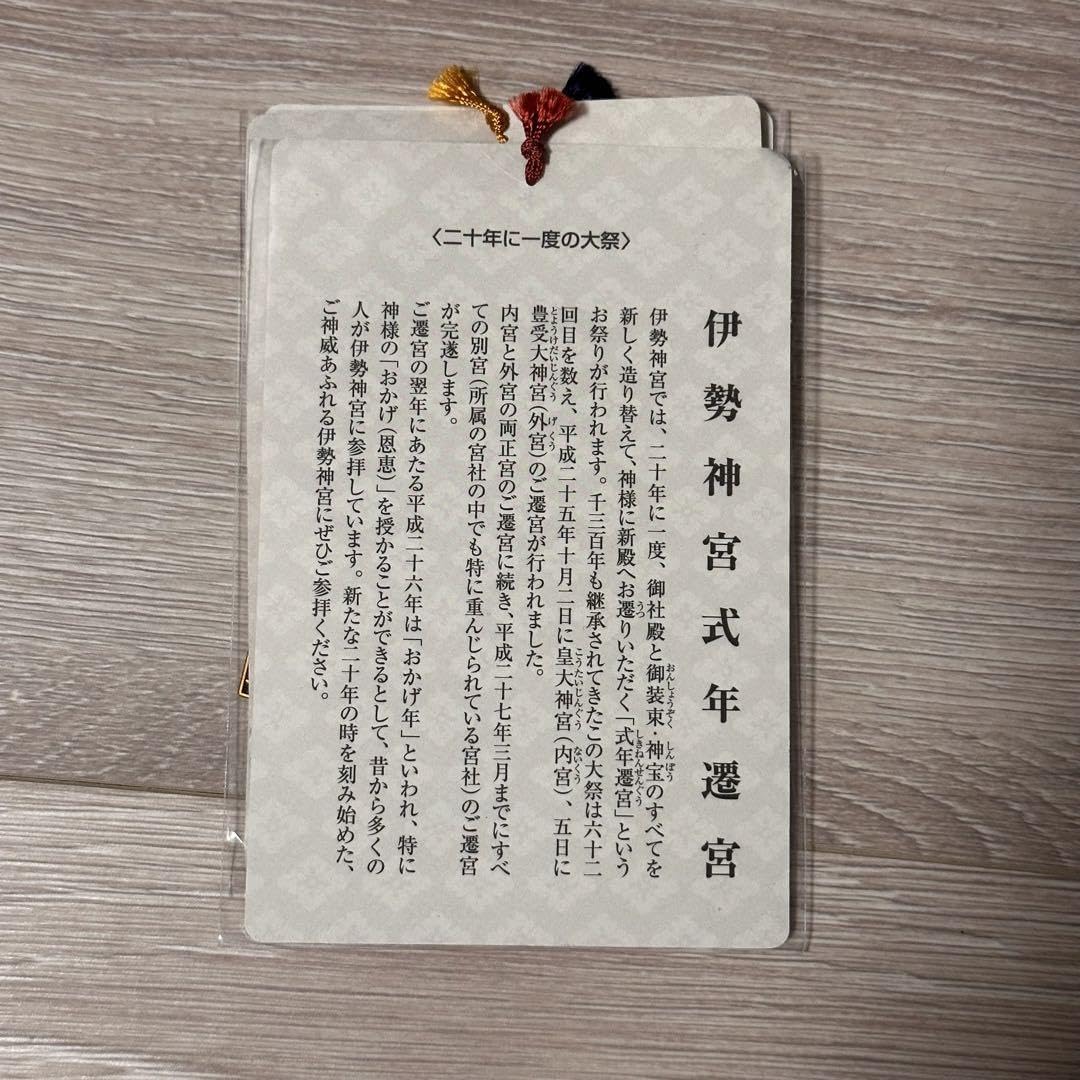 〈二十年に一度の大祭〉
伊勢神宮式年遷宮
伊勢神宮では、二十年に一度、御社殿と御装束・神宝のすべてを
おんしょうぞく しんぽう
新しく造り替えて、神様に新殿へお遷りいただく「式年遷宮」という
うつ しきねんせんぐう
お祭りが行われます。千三百年も継承されてきたこの大祭は六十二
回目を数え、平成二十五年十月二日に皇大神宮（内宮）、五日に
こうたいじんぐう ないくう
豊受大神宮（外宮）のご遷宮が行われました。
とようけだいじんぐう げくう
内宮と外宮の両正宮のご遷宮に続き、平成二十七年三月までにすべ
ての別宮（所属の宮社の中でも特に重んじられている宮社）のご遷宮
が完遂します。
ご遷宮の翌年にあたる平成二十六年は「おかげ年」といわれ、特に
神様の「おかげ（恩恵）」を授かることができるとして、昔から多くの
人が伊勢神宮に参拝しています。新たな二十年の時を刻み始めた、
ご神威あふれる伊勢神宮にぜひご参拝ください。